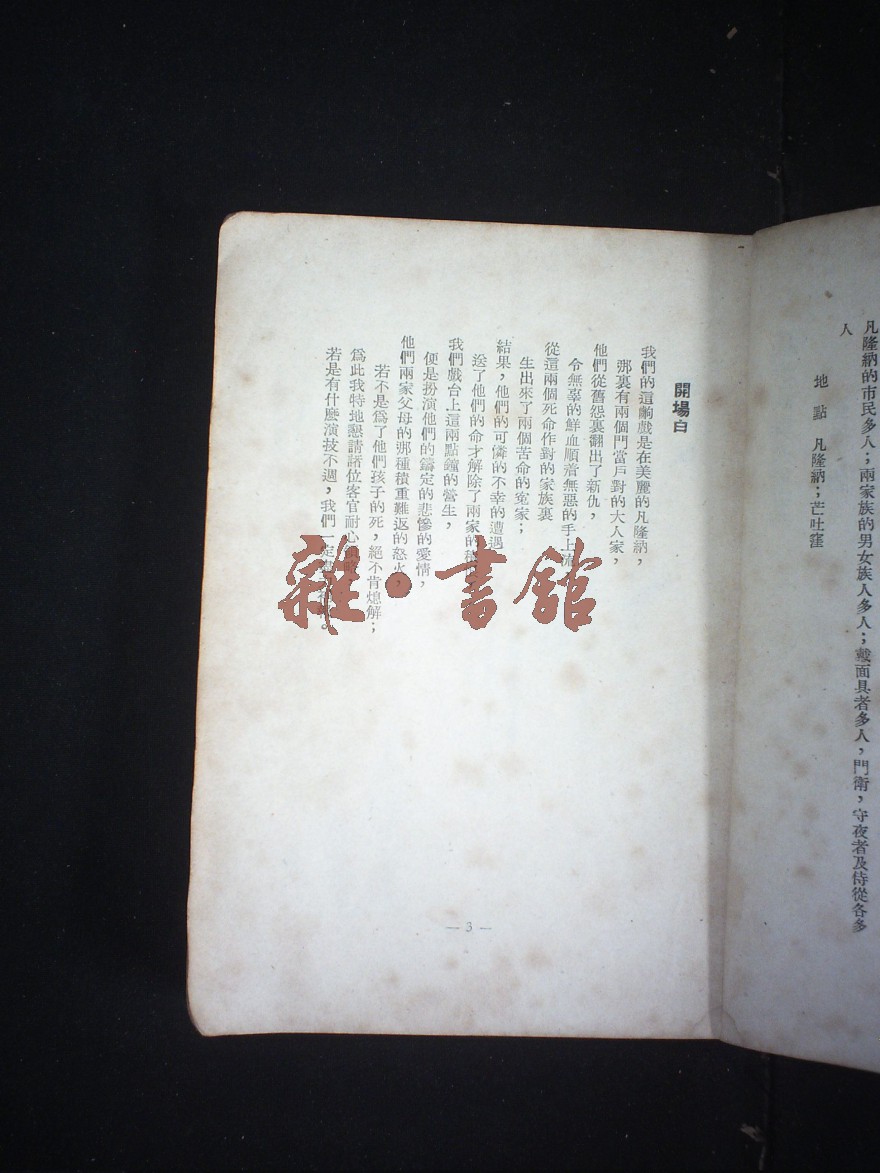 凡隆納的市民多人；兩家族的男女族人多人；戴面具者多人，門衛，守夜者及侍從各多
人
地點 凡隆納；芒吐窪
開場白
我們的這齣戲是在美麗的凡隆納，
那裏有兩個門當戶對的大人家，
他們從舊怨裏翻出了新仇，
令無辜的鮮血順着無惡的手上流
從這兩個死命作對的家族裏
生出來了兩個苦命的冤家；
結果，他們的可憐的不幸的遭遇
送了他們的命才解除了兩家的
我們戲台上這兩點鐘的營生，
便是扮演他們的鑄定的悲慘的愛情，
他們兩家父母的那種積重難返的怒火，
若不是爲了他們孩子的死，絕不肯熄解；
爲此我特地懇請諸位客官耐心
若是有什麼演技不週，我們一定
雜·書館
— 3 —